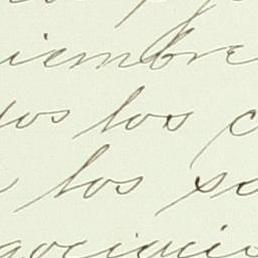 iembre
os los c
los so
gocicio